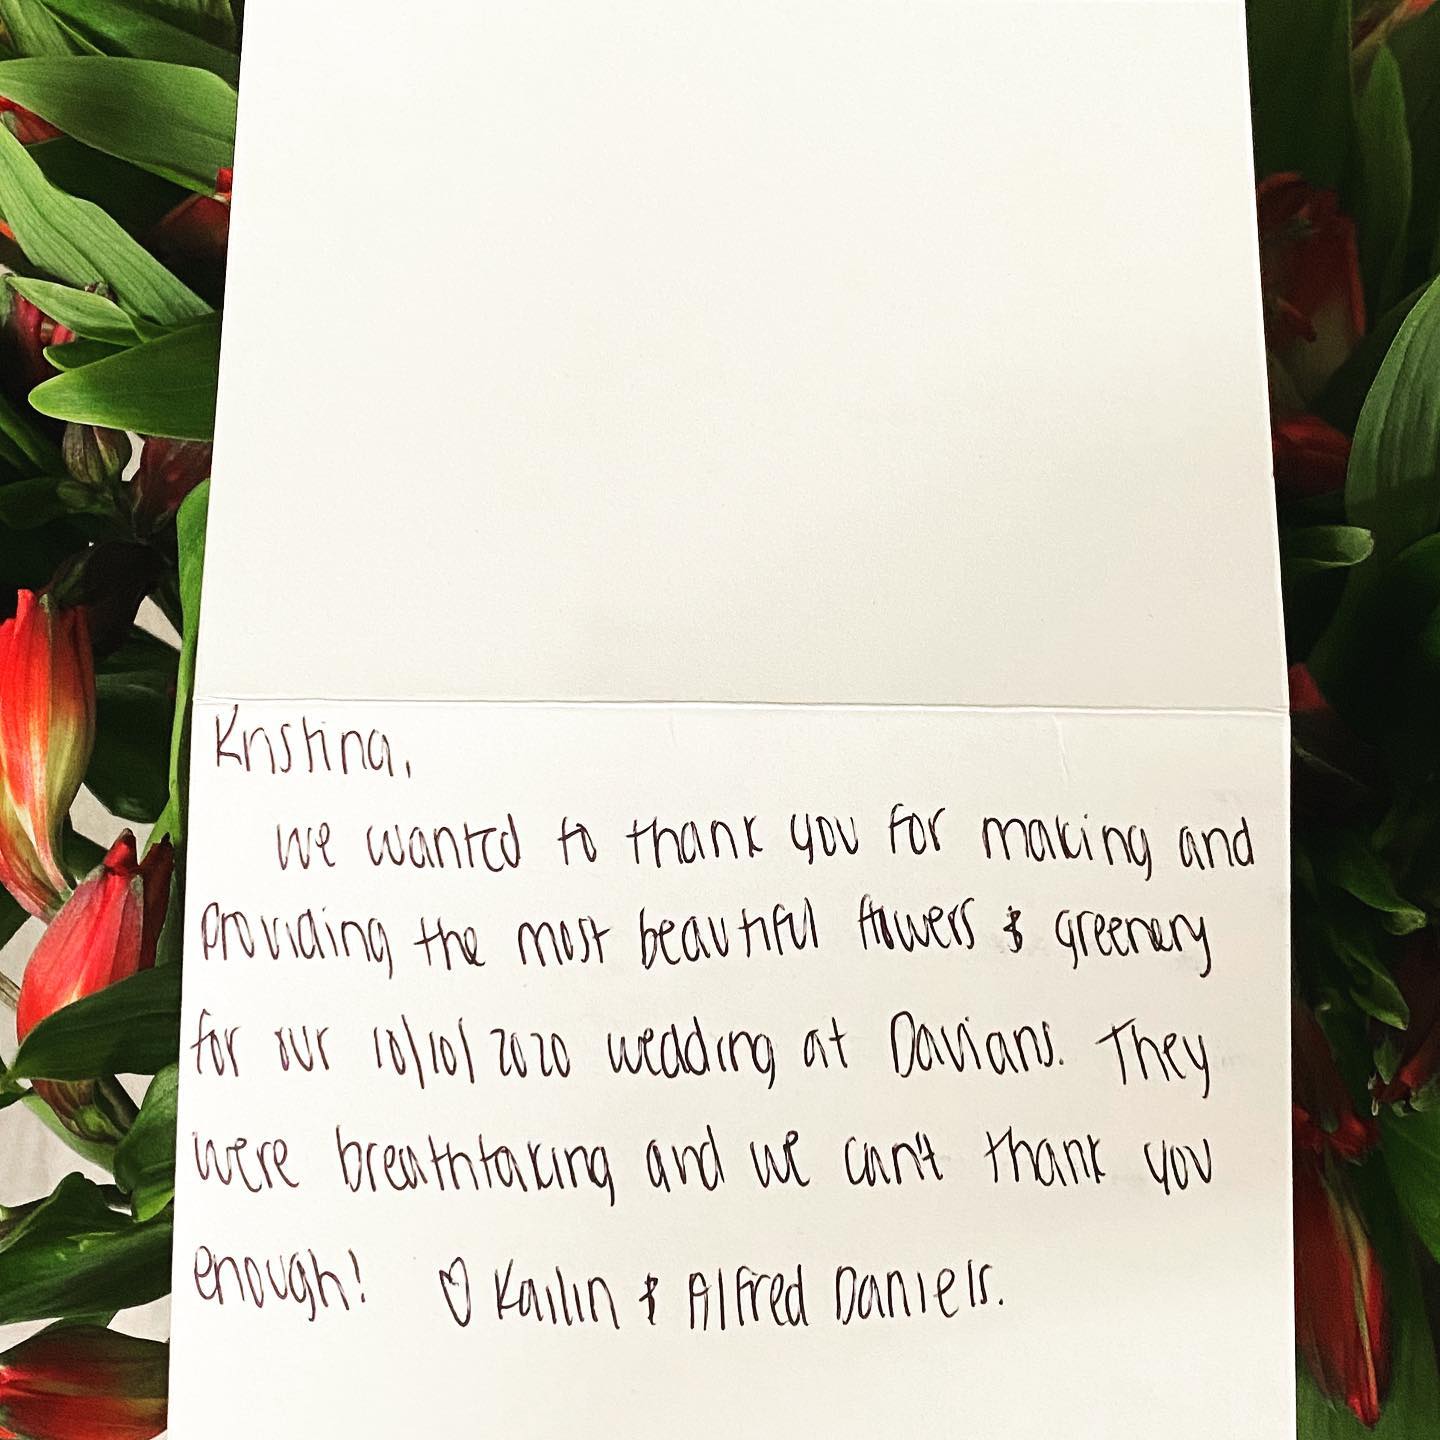 Kristina,
We wanted to thank you for making and
providing the most beautiful flowers & greenery
for our 10/10/2020 wedding at Davians. They
were breathtaking and we can't thank you
enough! ♡ Kailin & Alfred Daniels.